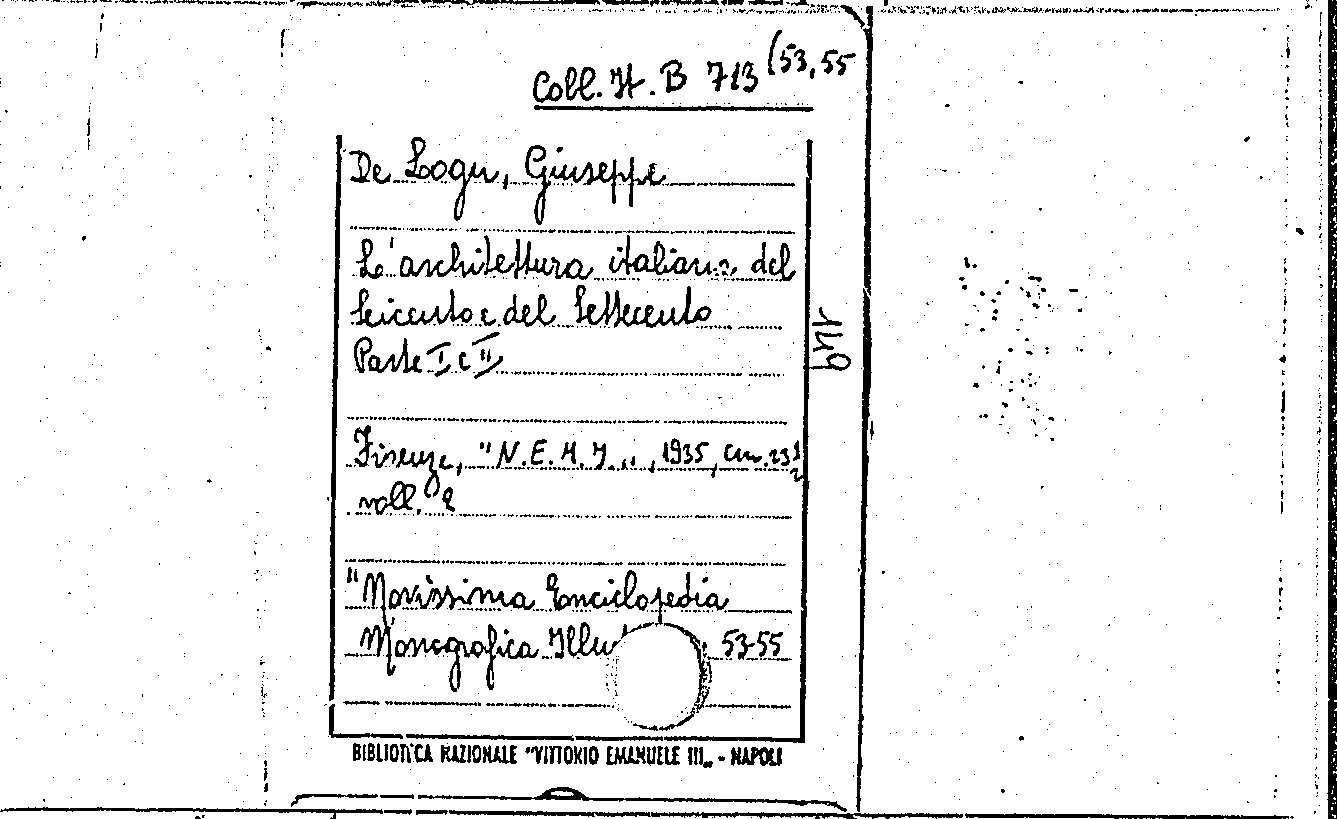 Coll. It. B 713 (53,55
De Logu, Giuseppe
L'architettura italiana del
Seicento e del Settecento
Parte I e II
Firenze, "N.E.M.I.,, , 1935, cm. 23½
voll. 2
"Novissima Enciclopedia
Monografica Illu 53-55
BIBLIOTECA NAZIONALE "VITTORIO EMANUELE III„ - NAPOLI